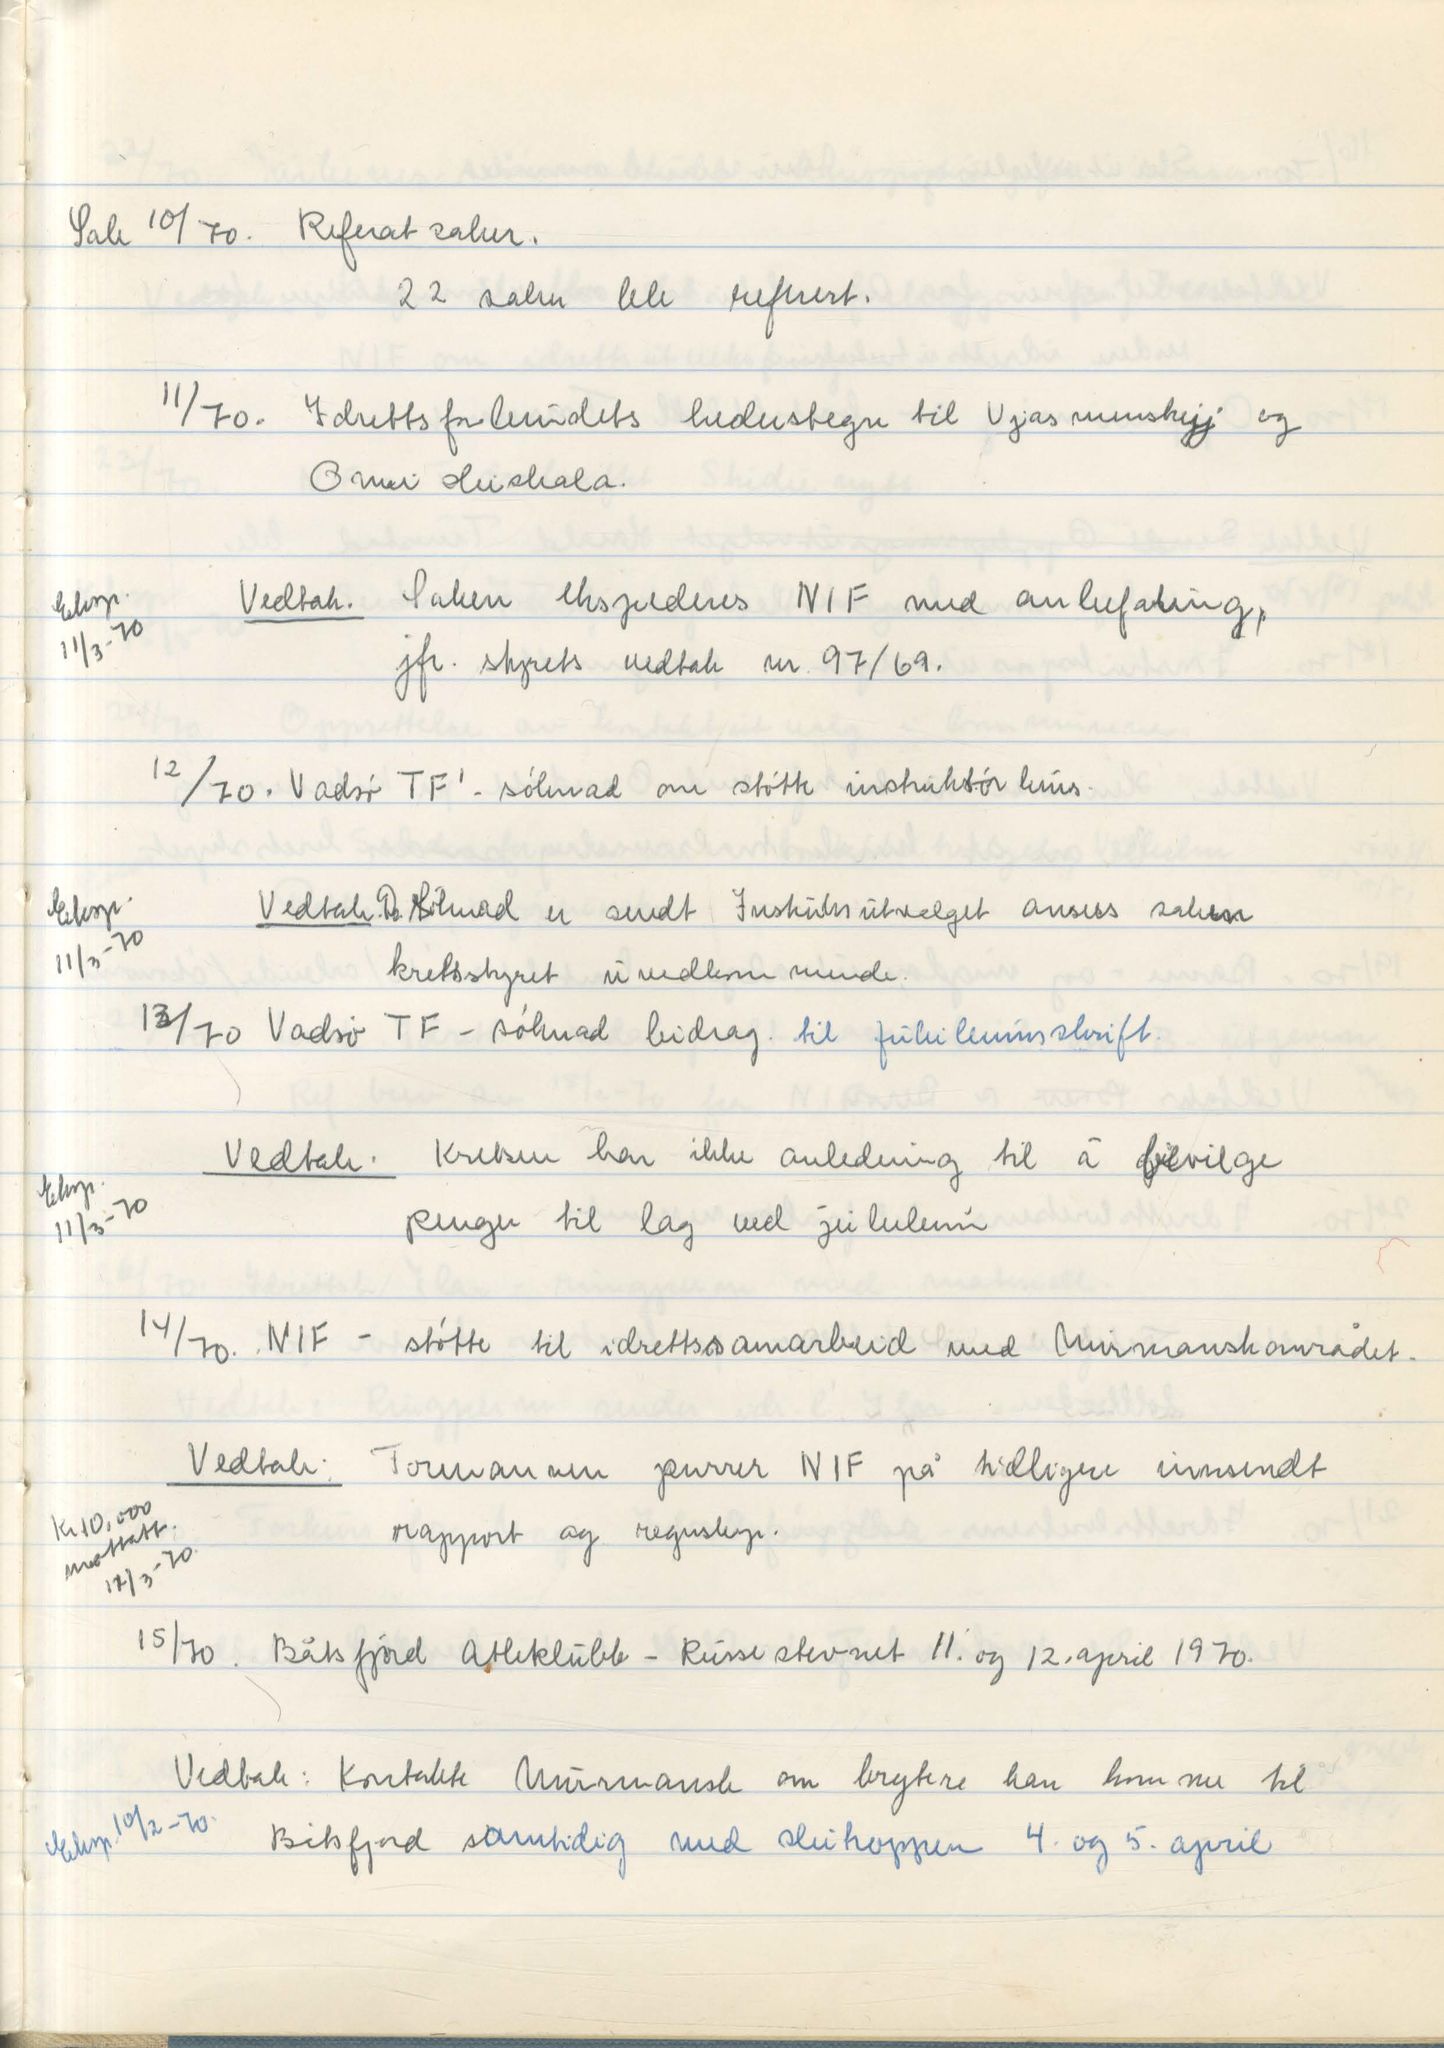 Sak 10/70. Referatsaker.
22 saker ble referert.
11/70. Idrettsforbundets hederstegn til Vjasmenskijj og
Onni Heiskala.
Eksp. 11/3-70
Vedtak. Saken ekspederes NIF med anbefaling,
jfr. styrets vedtak nr. 97/69.
12/70. Vadsø TF' - søknad om støtte instruktørkurs.
Eksp. 11/3-70
Vedtak. Da søknad er sendt Instruksutvalget anses saken
kretsstyret uvedkommende.
13/70 Vadsø TF - søknad bidrag til jubileumsskrift.
Eksp. 11/3-70
Vedtak. Kretsen har ikke anledning til å bevilge
penger til lag ved jubileum
14/70. NIF - støtte til idrettssamarbeid med Murmanskområdet.
Vedtak: Formannen purrer NIF på tidligere innsendt
rapport og regnskap.
Kr 10,000
mottatt.
17/3-70.
15/70. Båtsfjord Atletklubb - Russestevnet 11. og 12. april 1970.
Vedtak: Kontakte Murmansk om brytere kan komme til
Eksp. 10/2-70.
Båtsfjord samtidig med skihoppen 4. og 5. april